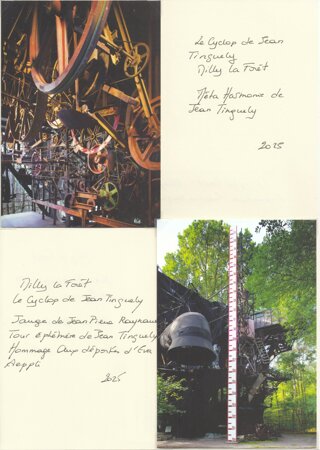 Le Cyclop de Jean
Tinguely
Milly la Forêt
Méta Harmonie de
Jean Tinguely
2025
Milly la Forêt
Le Cyclop de Jean Tinguely
Jauge de Jean Pierre Raynaud
Tour éphémère de Jean Tinguely
Hommage aux déportés d'Eva
Aeppli
2025